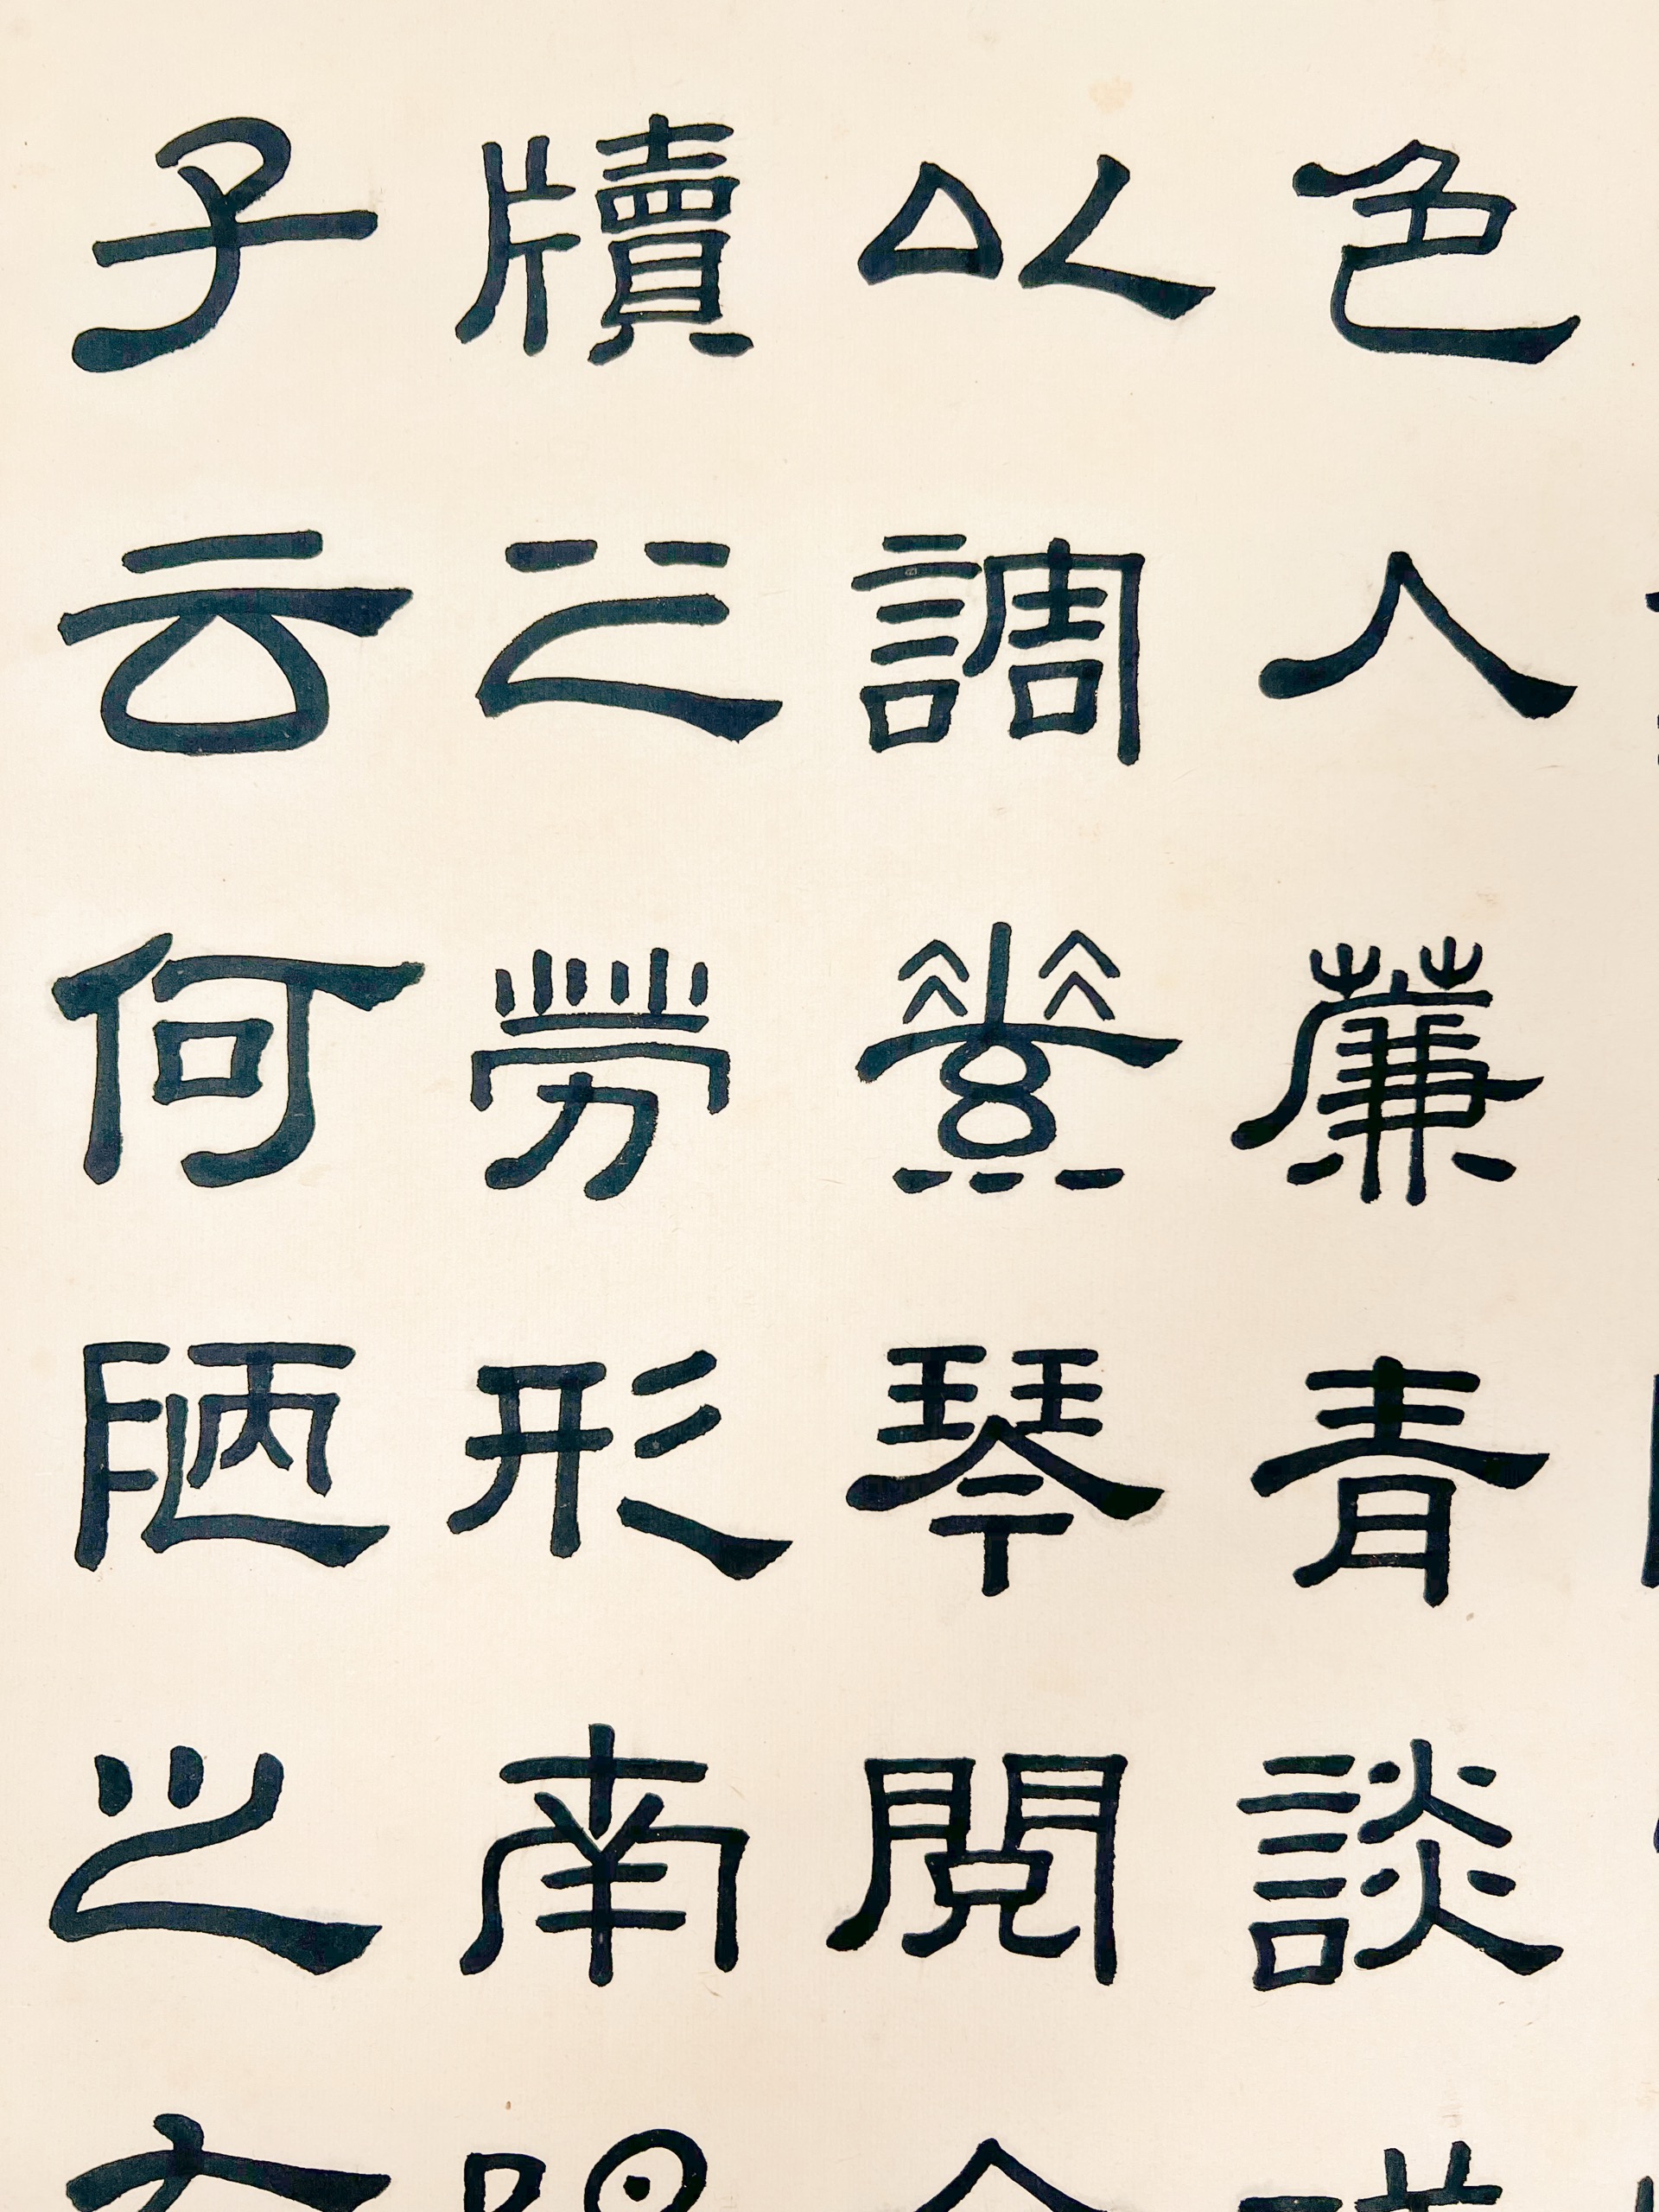 色入簾青談
以調素琴閱
牘之勞形南
子云何陋之